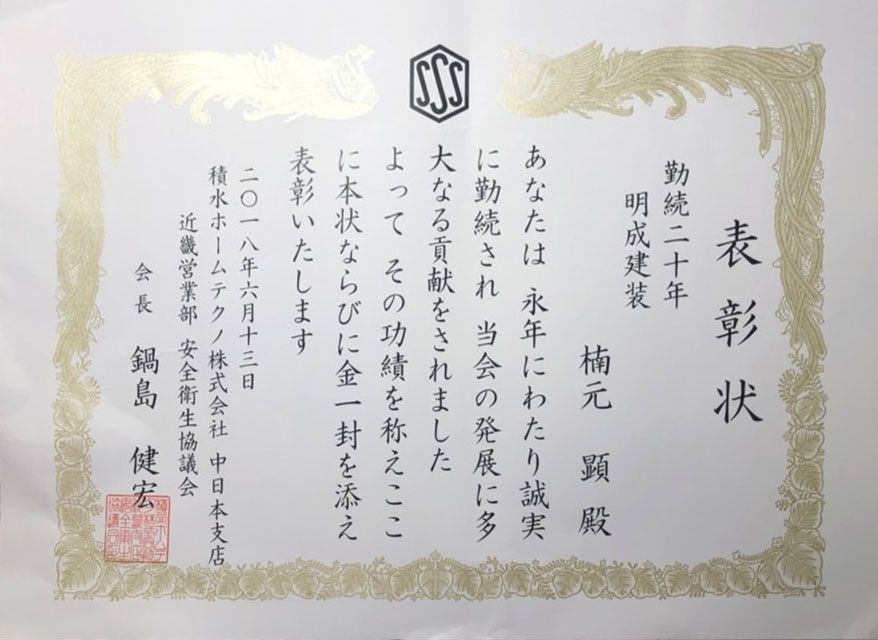 SSS
表彰状
勤続二十年
明成建装
楠元 顕 殿
あなたは 永年にわたり誠実
に勤続され 当会の発展に多
大なる貢献をされました
よって その功績を称えここ
に本状ならびに金一封を添え
表彰いたします
二〇一八年六月十三日
積水ホームテクノ株式会社 中日本支店
近畿営業部 安全衛生協議会
会長 鍋島 健宏